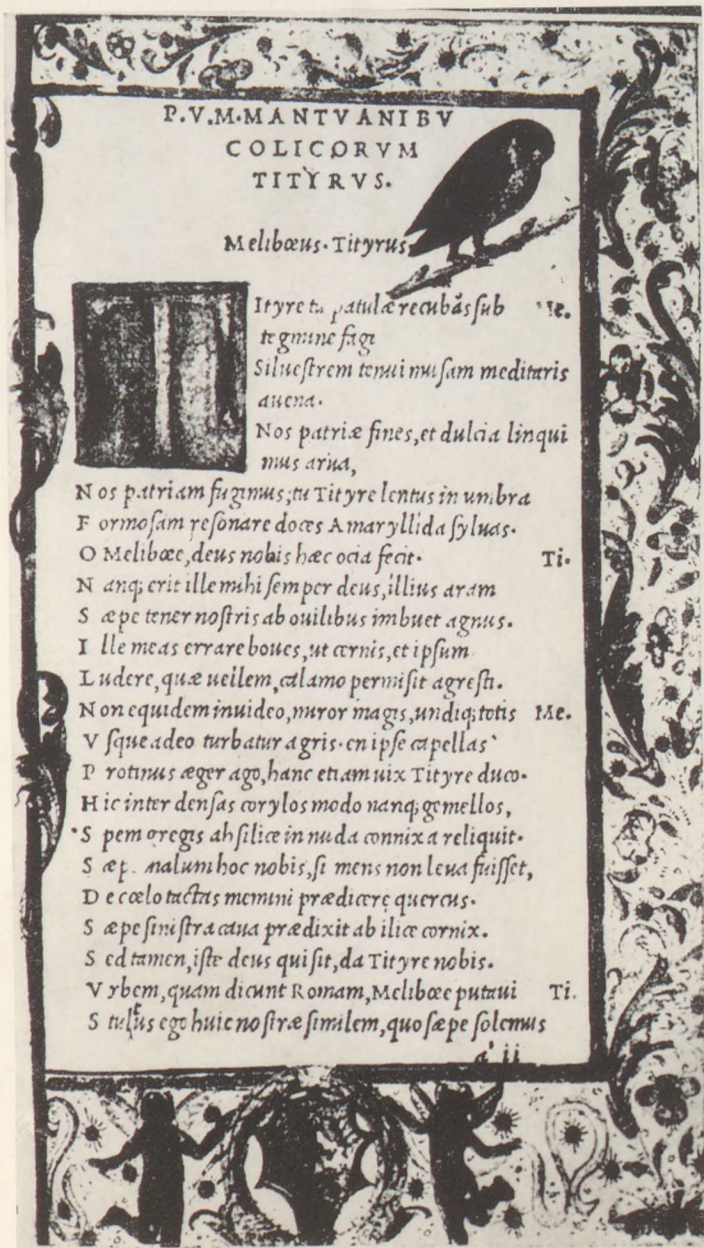 P.V.M.MANTVANIBV
COLICORVM
TITYRVS.
Melibœus. Tityrus
Ityre tu patulæ recubãs sub Me.
tegmine fagi
Siluestrem tenui musam meditaris
auena.
Nos patriæ fines, et dulcia linqui
mus arua,
N os patriam fugimus; tu Tityre lentus in umbra
F ormosam resonare doces Amaryllida syluas.
O Melibœe, deus nobis hæc ocia fecit. Ti.
N anq; erit ille mihi semper deus, illius aram
S æpe tener nostris ab ouilibus imbuet agnus.
I lle meas errare boues, ut cernis, et ipsum
L udere, quæ uellem, calamo permisit agresti.
N on equidem inuideo, miror magis, undiq; totis Me.
V sque adeo turbatur agris. en ipse capellas
P rotinus æger ago, hanc etiam uix Tityre duco.
H ic inter densas corylos modo nanq; gemellos,
S pem gregis ah silice in nuda connixa reliquit.
S æpe malum hoc nobis, si mens non leua fuisset,
D e cœlo tactas memini prædicere quercus.
S æpe sinistra caua prædixit ab ilice cornix.
S ed tamen, iste deus qui sit, da Tityre nobis.
V rbem, quam dicunt Romam, Melibœe putaui Ti.
S tultus ego huic nostræ similem, quo sæpe solemus
a ii